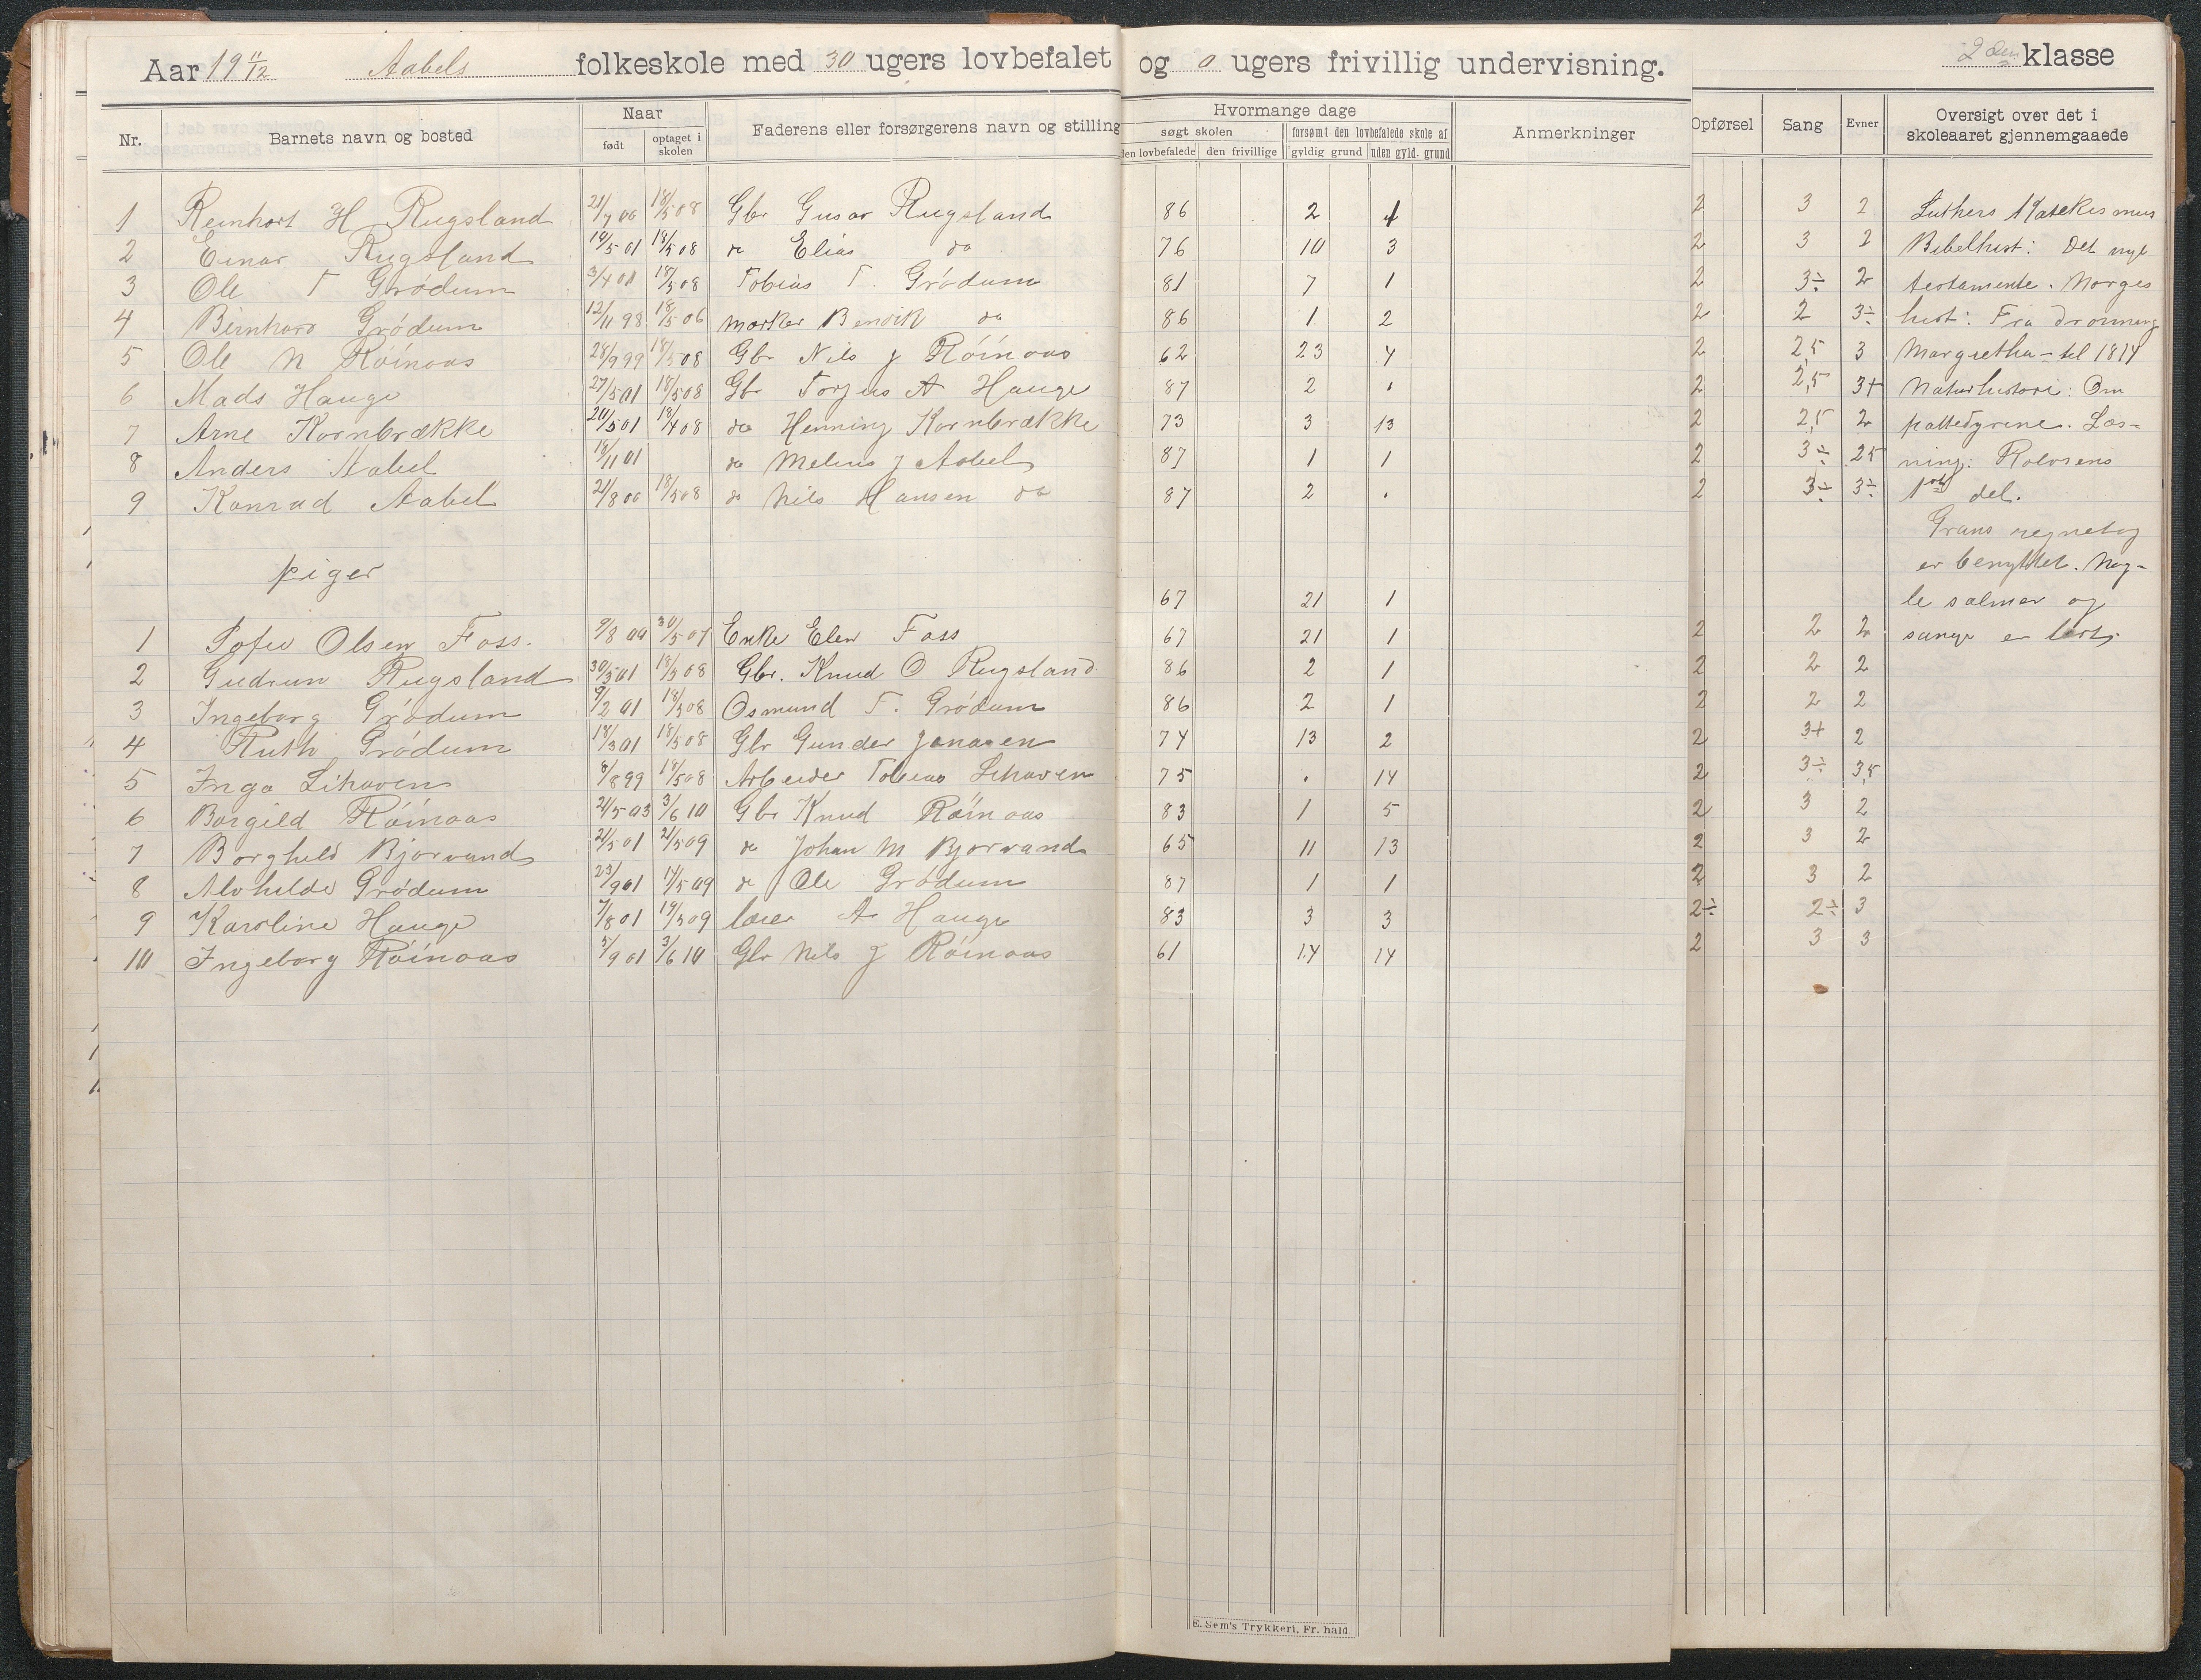 Aar 19 11/12 Aabels folkeskole med 30 ugers lovbefalet og 0 ugers frivillig undervisning. 2den klasse
Nr. Barnets navn og bosted Naar Faderens eller forsørgerens navn og stilling Hvormange dage Anmerkninger Opførsel Sang Evner Oversigt over det i skoleaaret gjennemgaaede
født optaget i skolen søgt skolen forsømt den lovbefalede skole af
den lovbefalede den frivillige gyldig grund uden gyld. grund
1 Reinhart H Rugsland 21/7 00 18/5 08 Gbr Gusav Rugsland 86 2 1 2 3 2 Luthers Katekismus
2 Einar Rugsland 10/5 01 18/5 08 do Elias do 76 10 3 2 3 2 Bibelhist: Det nye
3 Ole T Grödum 3/4 01 18/5 08 Tobias T. Grödum 81 7 1 2 3÷ 2 testamente. Norges
4 Bernhard Grödum 12/11 98 18/5 06 Bendik do 86 1 2 2 2 3÷ hist: Fra dronning
5 Ole N Röinaas 28/9 99 18/5 08 Gbr Nils J Röinaas 62 23 4 2 2,5 3 Margretha - til 1814
6 Mads Hauge 27/5 01 18/5 08 Gbr Torjus A Hauge 87 2 . 2 2,5 3+ Naturhistorie: Om
7 Arne Kornbrække 20/5 01 18/4 08 do Henning Kornbrække 73 3 13 2 2,5 2 pattedyrene. Læs-
8 Anders Aabel 18/11 01 do Melius J Aabel 87 1 1 2 3÷ 25 ning: Rolvsens
9 Konrad Aabel 21/8 00 18/5 08 do Nils Hansen do 87 2 . 2 3÷ 3÷ 1ste del.
Grans regnebog
piger er benyttet. Nog-
67 21 1 le salmer og
1 Sofie Olsen Foss. 9/8 00 30/5 07 Enke Elen Foss 67 21 1 2 2 2 sange er lært.
2 Gudrun Rugsland 30/5 01 18/5 08 Gbr. Knud O Rugsland 86 2 1 2 2 2
3 Ingeborg Grödum 9/2 01 18/5 08 Osmund T. Grödum 86 2 1 2 2 2
4 Ruth Grödum 18/3 01 18/5 08 Gbr Gunder Janasen 74 13 2 2 3+ 2
5 Inga Lihaven 8/8 99 18/5 08 Arbeider Tobias Lihaven 75 . 14 2 3÷ 3,5
6 Borgild Röinaas 21/5 03 3/6 10 Gbr Knud Röinaas 83 1 5 2 3 2
7 Borghild Bjorvand 21/5 01 21/5 09 do Johan M Bjorvand 65 11 13 2 3 2
8 Alvhilde Grödum 23/9 01 14/5 09 do Ole Grödum 87 1 1 2 3 2
9 Karoline Hauge 7/8 01 14/5 09 lærer A Hauge 83 3 3 2÷ 2÷ 3
10 Ingeborg Röinaas 5/9 01 3/6 10 Gbr Nils J Röinaas 61 14 14 2 3 3
E. Sem's Trykkeri, Fr. hald